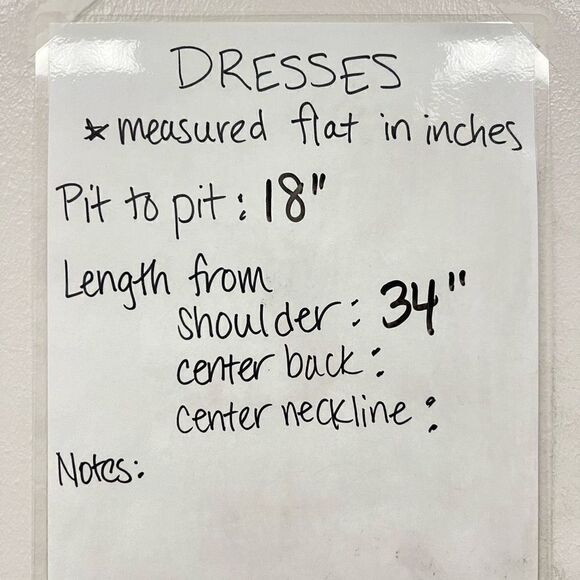 DRESSES
* measured flat in inches
Pit to pit: 18"
Length from
shoulder: 34"
center back:
center neckline:
Notes: